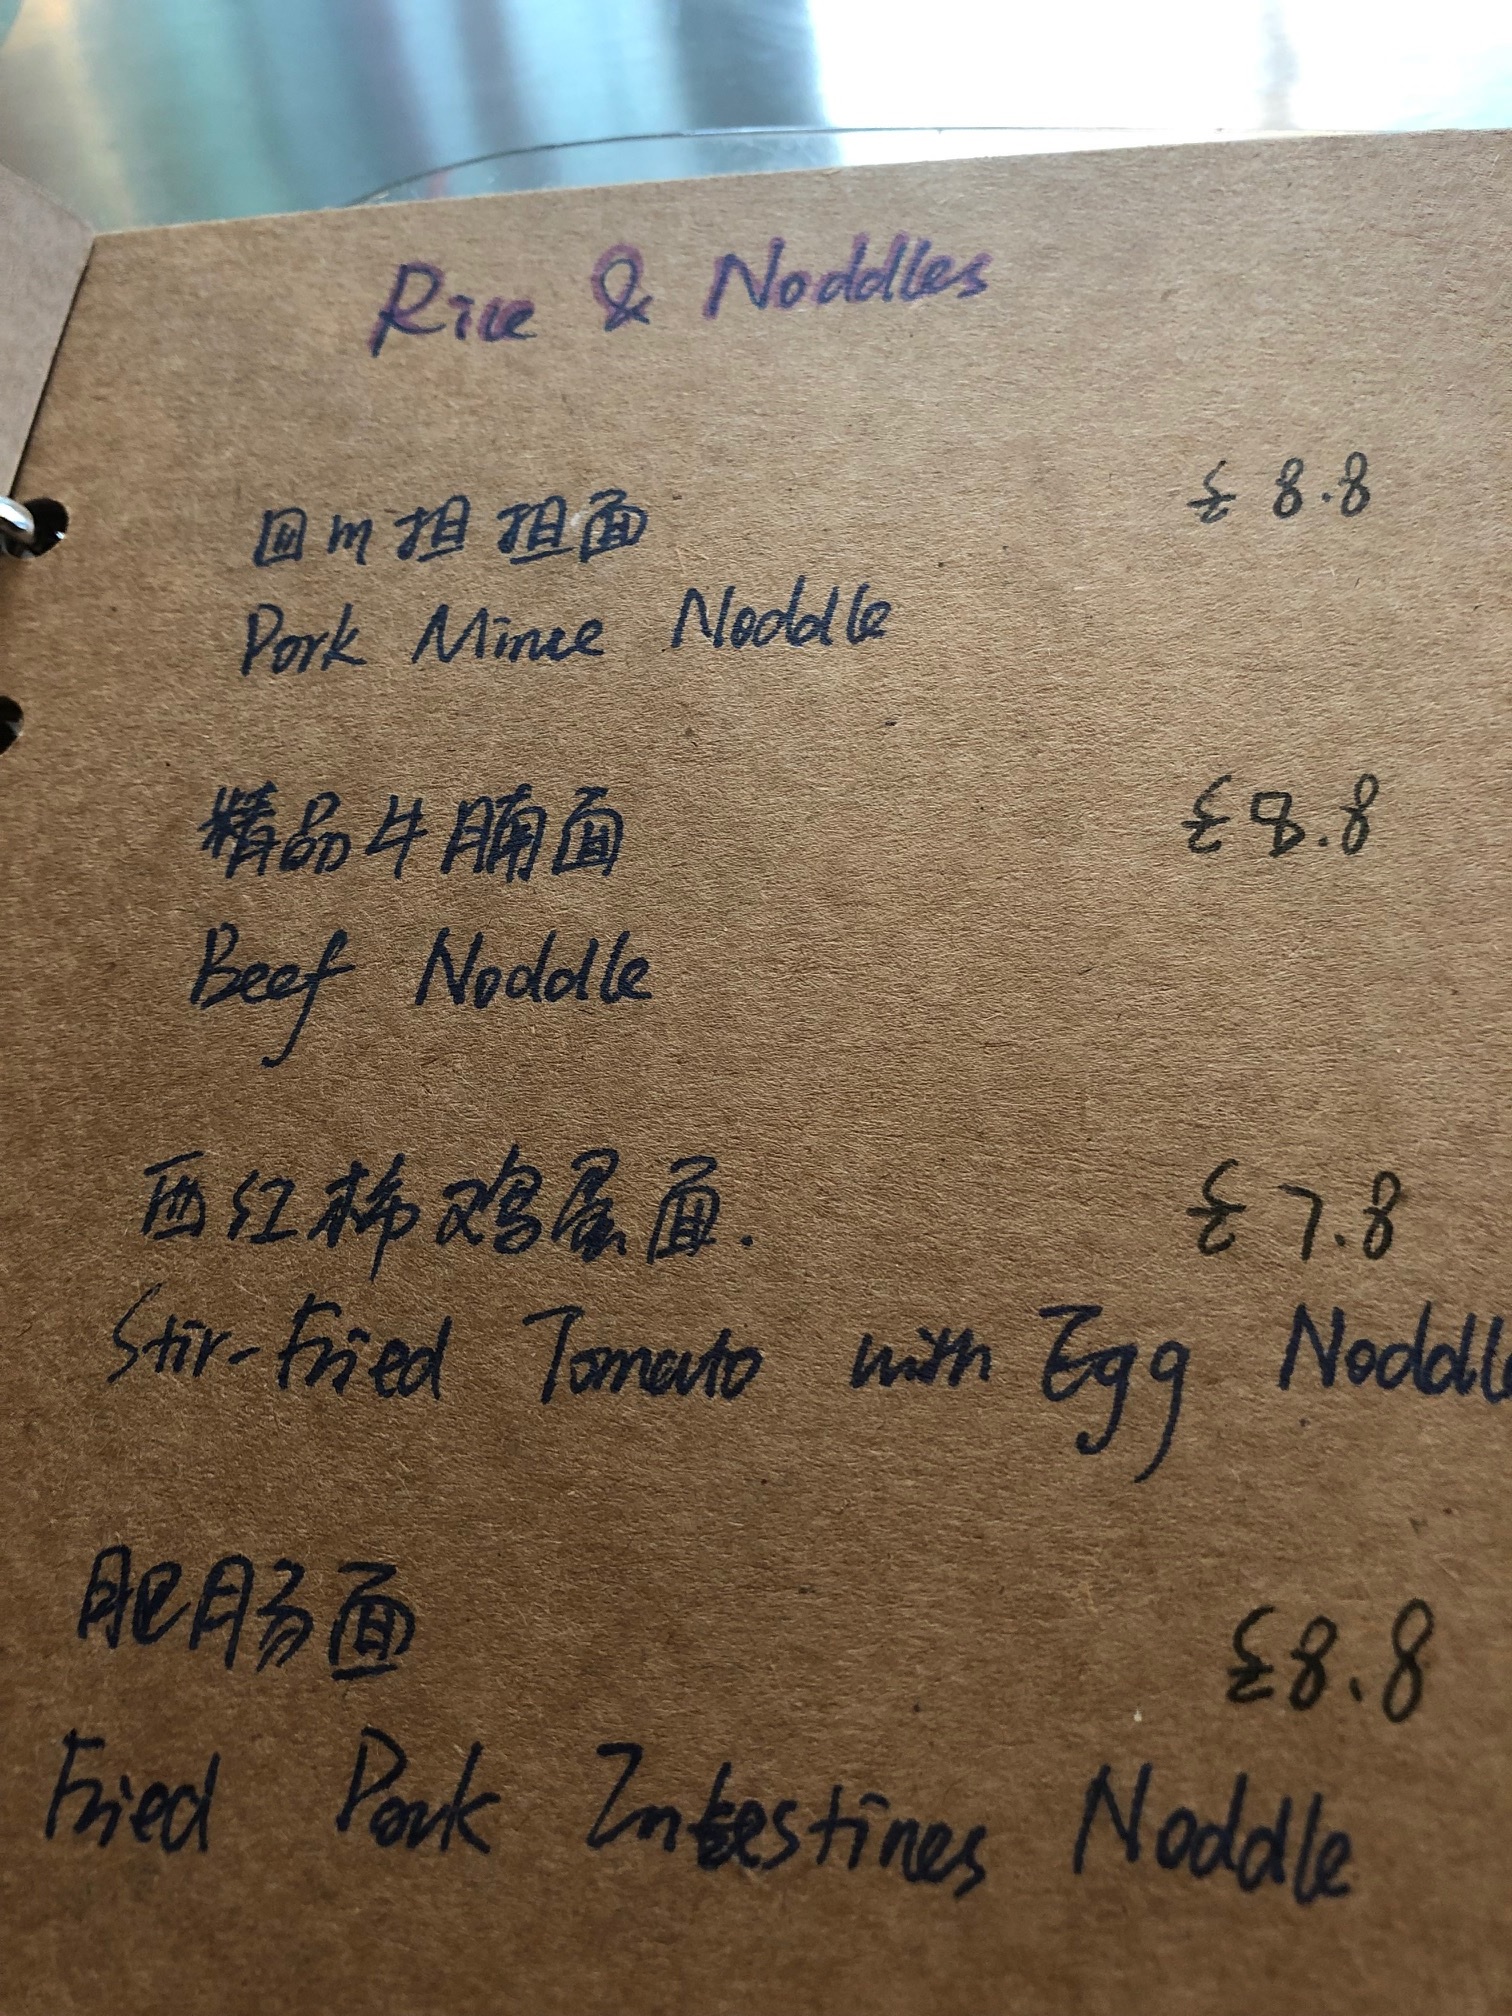 Rice & Noddles
四川担担面 £8.8
Pork Mince Noddle
精品牛腩面 £8.8
Beef Noddle
西红柿鸡蛋面. £7.8
Stir-Fried Tomato with Egg Noddle
肥肠面 £8.8
Fried Pork Intestines Noddle